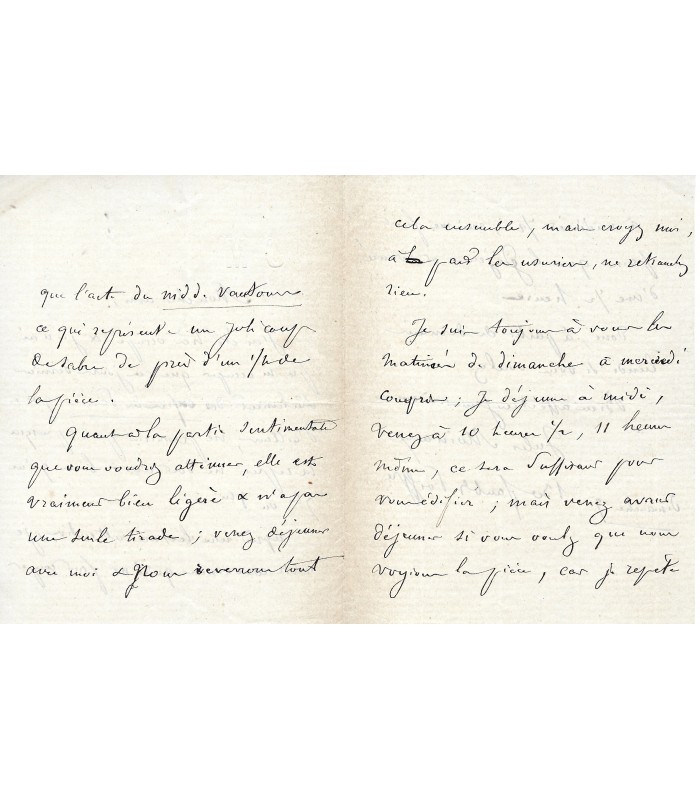 que l'acte du nid de Vautours
ce qui représente un joli coup
de sabre de près d'un 1/4 de
la pièce.
Quant à la partie sentimentale
que vous voudrez atténuer, elle est
vraiment bien légère & n'a pas
une seule tirade ; venez déjeuner
avec moi & nous reverrons tout
cela ensemble, mais croyez moi,
à part les usuriers, ne retranchez
rien.
Je suis toujours à vous les
matinées de dimanche à mercredi
compris ; Je déjeune à midi,
venez à 10 heures 1/2, 11 heures
même, ce sera suffisant pour
vous édifier ; mais venez avant
déjeuner si vous voulez que nous
voyions la pièce, car je répète